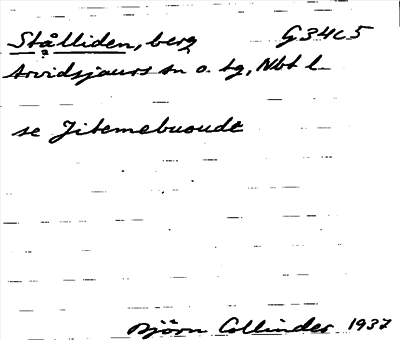 Stålliden, berg G34c5
Arvidsjaurs sn o. tg, Nbt l.
se Jitemebuoudt
Björn Collinder 1937